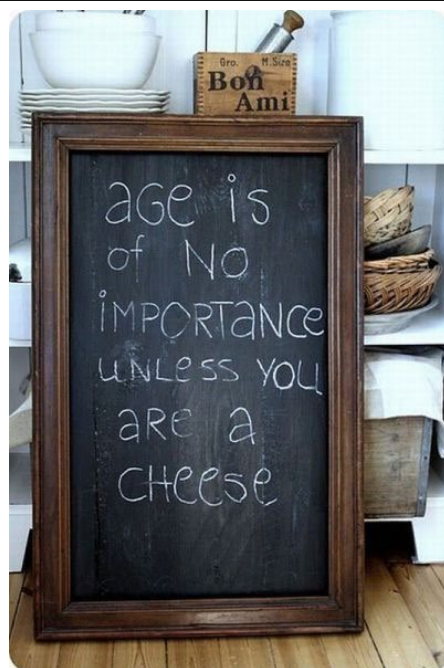 Gro. M.Size
Bon
Ami
aGe is
of NO
iMPORTaNce
uNLess YOU
aRe a
cHeese